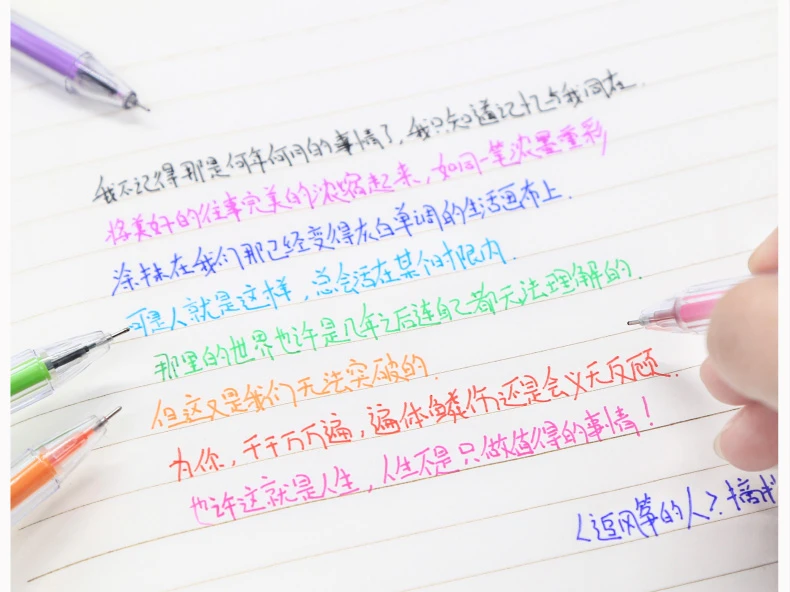 我不记得那是何年何月的事情了，我只知道记忆与我同在.
将美好的往事完美的浓缩起来，如同一笔浓墨重彩
涂抹在我们那已经变得灰白单调的生活画布上.
可是人就是这样，总会活在某个时限内.
那里的世界也许是几年之后连自己都无法理解的.
但这又是我们无法突破的.
为你，千千万万遍，遍体鳞伤还是会义无反顾.
也许这就是人生，人生不是只做值得的事情！
《追风筝的人》摘抄